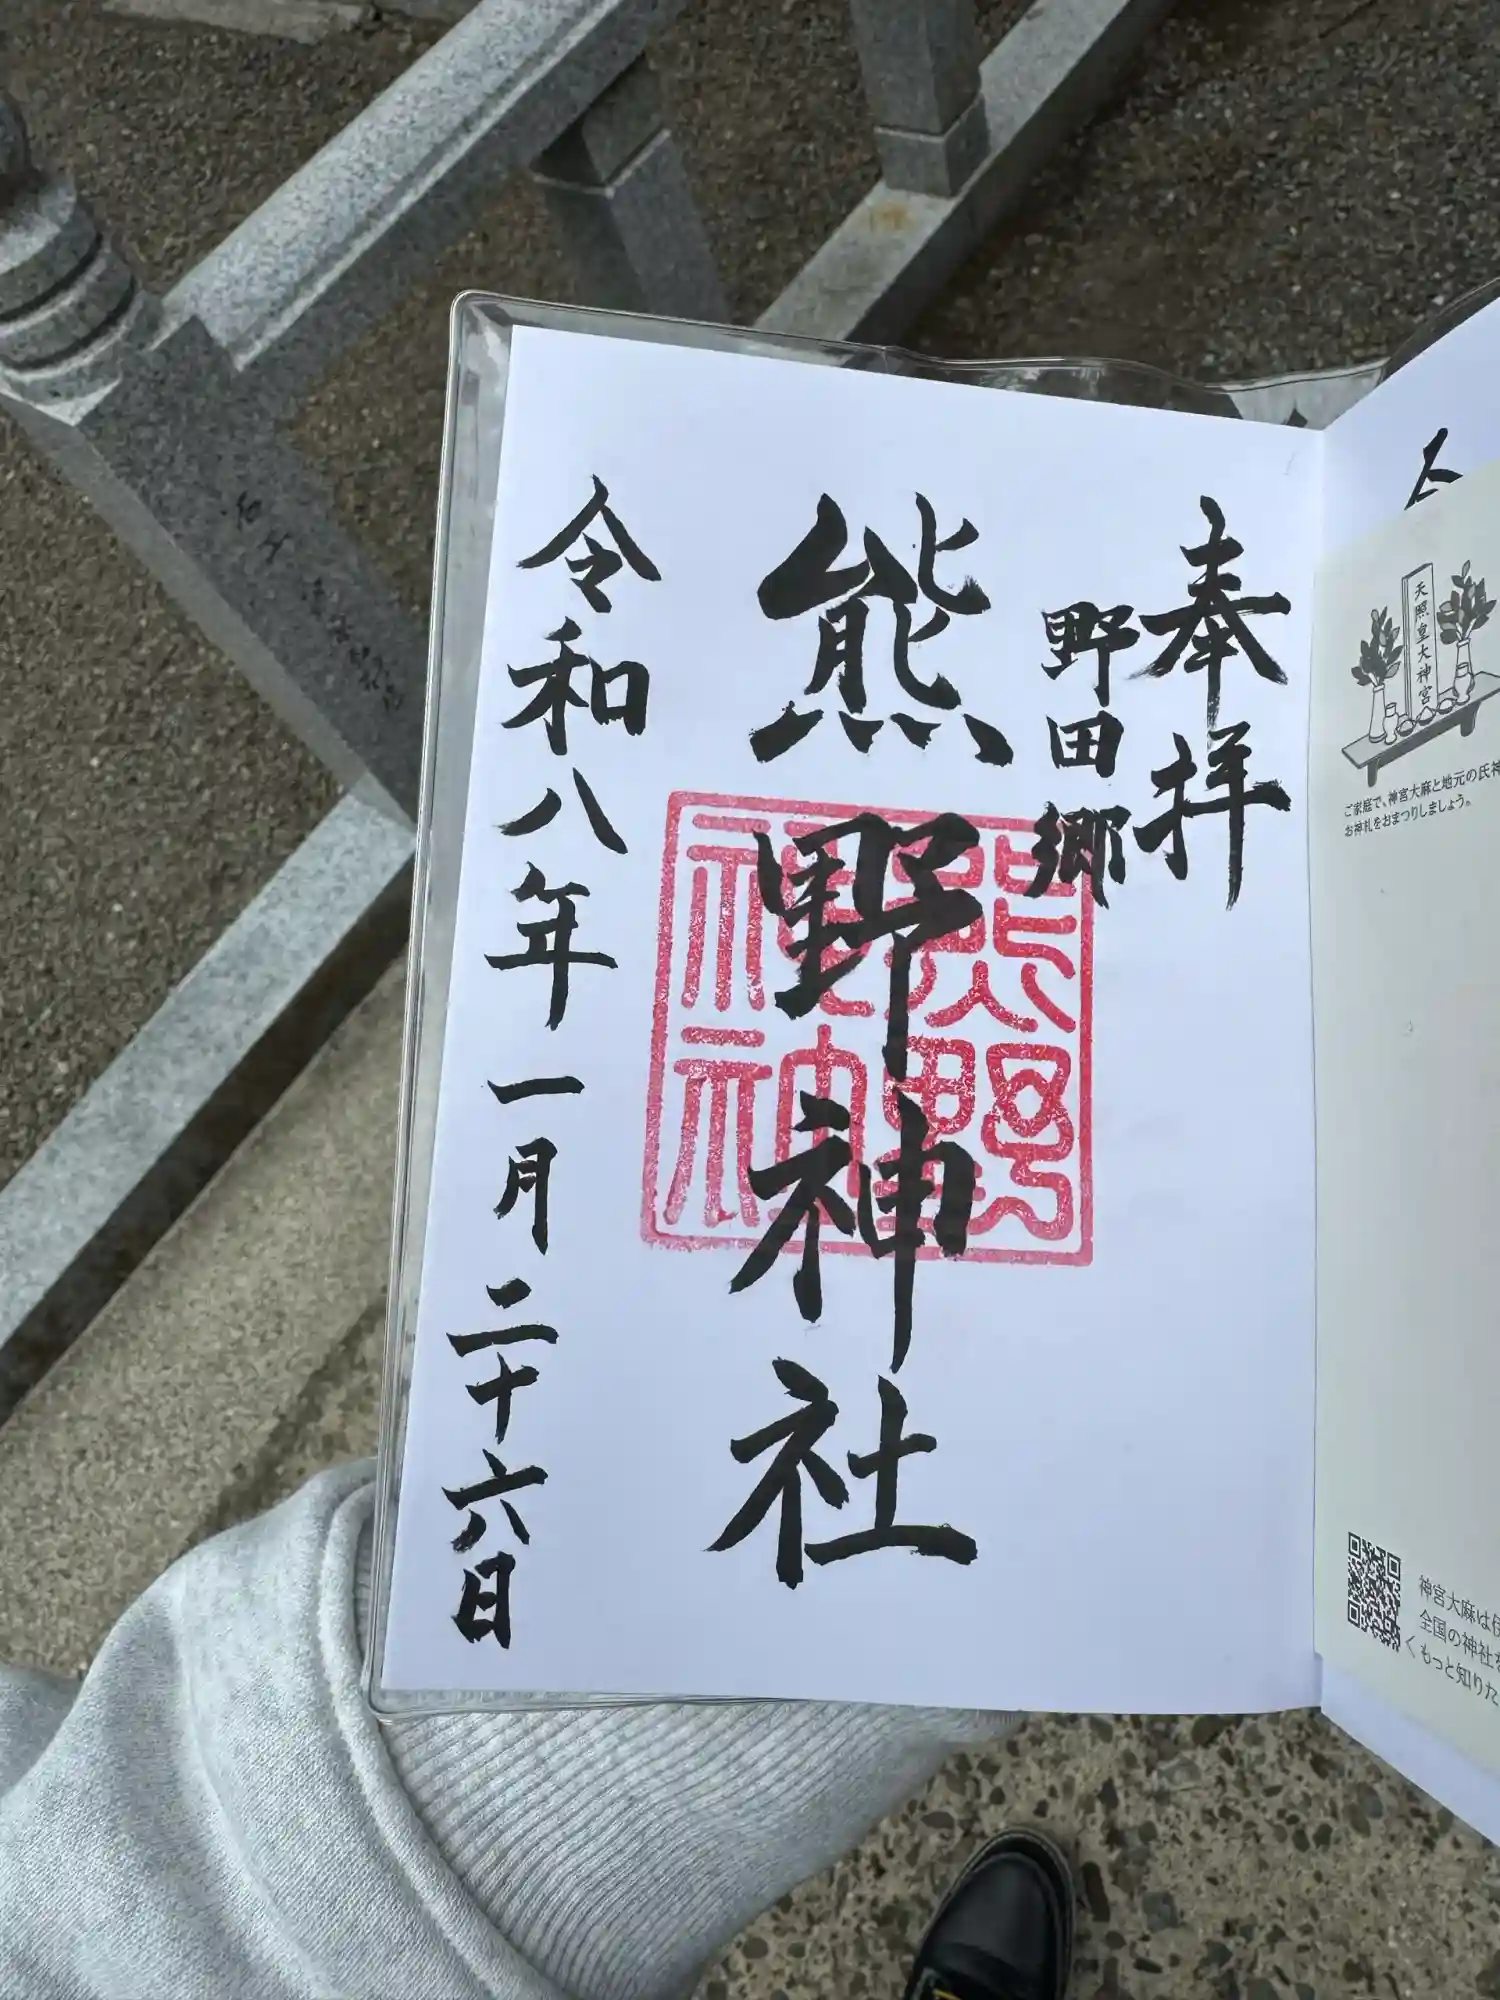 奉拝
野田郷
熊野神社
令和八年一月二十六日
熊野
神社
天照皇大神宮
ご家庭で、神宮大麻と地元の氏神
お神札をおまつりしましょう。
神宮大麻は
全国の神社を
くもっと知りた